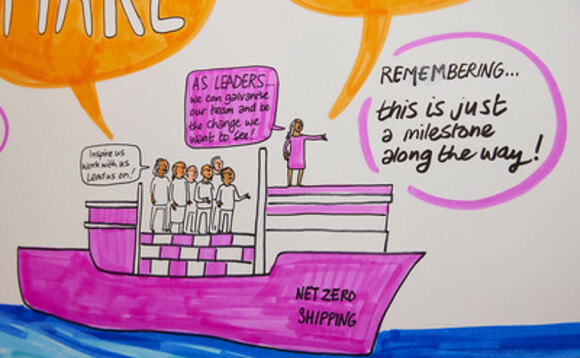 MAKE
AS LEADERS...
we can galvanise
our team and be
the change we
want to see!
REMEMBERING...
this is just
a milestone
along the way!
Inspire us
Work with us
Lead us on!
NET ZERO
SHIPPING